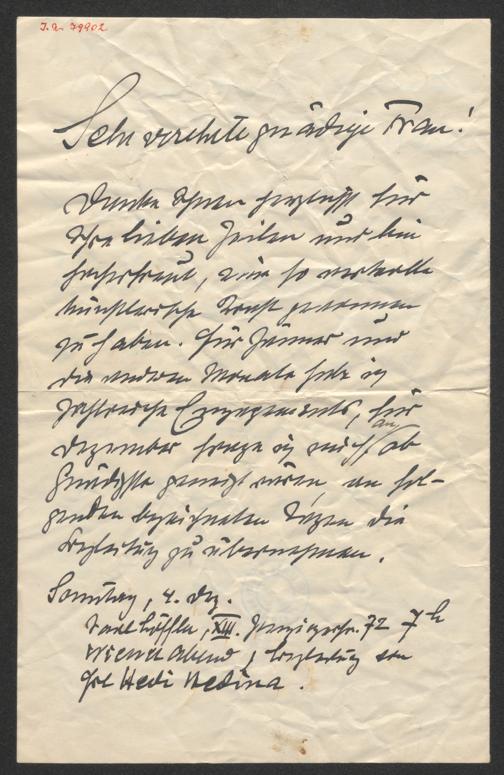 I.N. 79902
Sehr verehrte gnädige Frau!
Danke Ihnen herzlichst für
Ihre lieben Zeilen und bin
hocherfreut, eine so wertvolle
künstlerische Kraft gewonnen
zu haben. Für Jänner und
die anderen Monate habe ich
zahlreiche Engagements, für
Dezember frage ich mich an, ob
Gnädigste geneigt wären, an fol-
genden bezeichneten Tagen die
Begleitung zu übernehmen.
Sonntag, 4. Dez.
XIII. 72 7h
Abend, Begleitung von
Frl Hedi Medina.